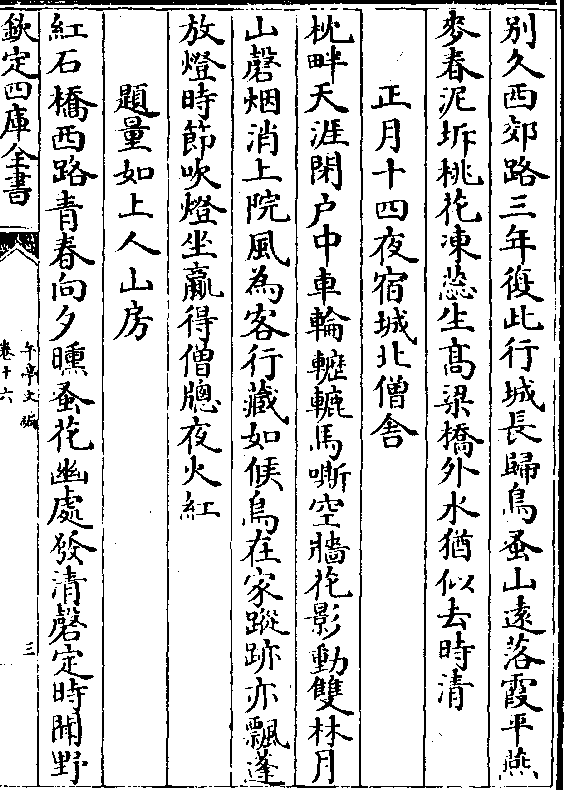 別久西郊路三年復此行城長歸鳥蚤山遠落霞平燕
麥春泥坼桃花凍蕊生髙梁橋外水猶似去時清
正月十四夜宿城北僧舍
枕畔天涯閉户中車輪轣轆馬嘶空牆花影動雙林月
山磬烟消上院風為客行藏如候鳥在家蹤跡亦飄蓬
放燈時節吹燈坐贏得僧牕夜火紅
題量如上人山房
紅石橋西路青春向夕曛蚤花幽處發清磬定時聞野
欽定四庫全書
午亭文編
卷十六
三